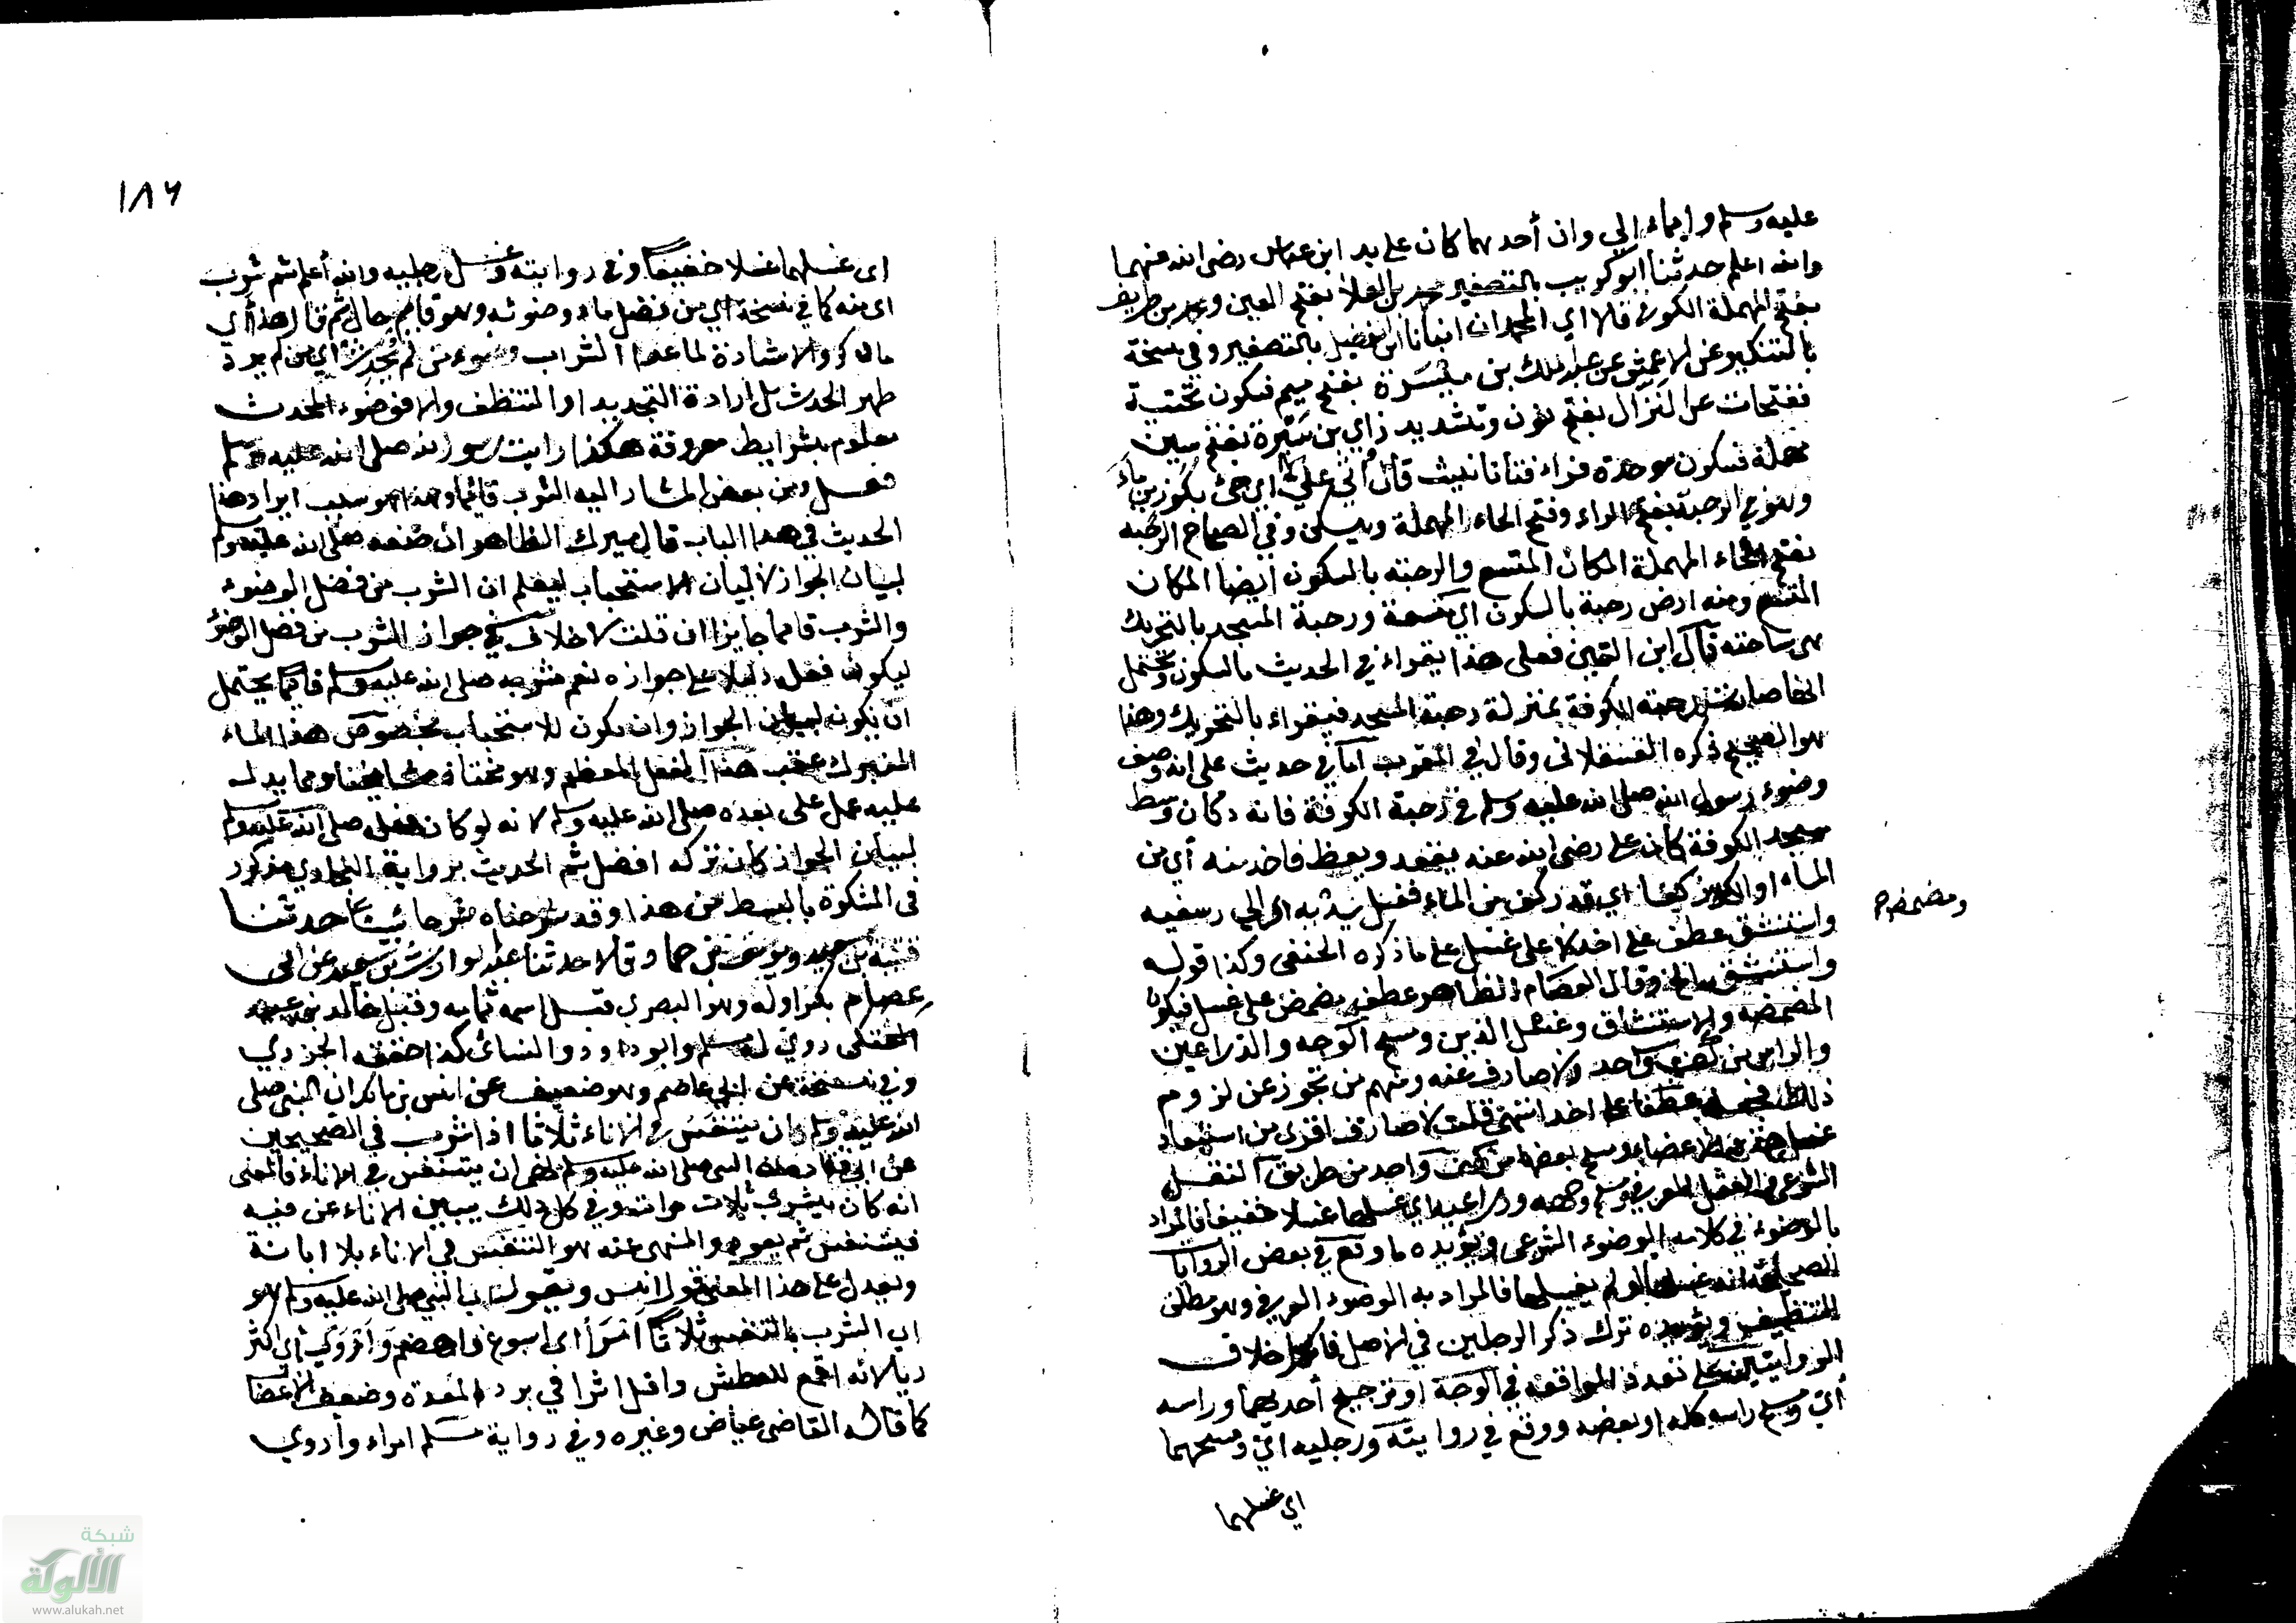 عليه وسلم وايماء الي وان أحدهما كان على يد ابن عباس رضى الله عنهما
والله اعلم حدثنا ابو كريب بالتصغير محمد بن العلا بفتح العين ومحمد بن طريف
بفتح المهملة الكوفي قالا اي المحمدان انبانا ابن الفضيل بالتصغير وفي نسخة
بالتنكير عن الاعمش عن عبد الملك بن ميسرة بفتح ميم فسكون تحتية
ففتحات عن النزال بفتح نون وتشديد زاي بن سبرة بفتح سين
مهملة فسكون موحدة فراء فتأ تانيث قال أتي علي اي جئ بكوز من ماء
وهو في الرحبة بفتح الراء وفتح الحاء المهملة ويسكن وفي الصحاح الرحبه
بفتح الحاء المهملة المكان المتسع والرحبه بالسكون ايضا المكان
المتسع ومنه ارض رحبة بالسكون اي متسعة ورحبة المسجد بالتحريك
هي ساحته قال ابن التين فعلى هذا يقراء في الحديث بالسكون ويحتمل
انها صارت رحبة الكوفة بمنزلة رحبة المسجد فيقراء بالتحريك وهذا
هو الصحيح ذكره العسقلانى وقال في المغرب اما في حديث على انه وصف
وضوء رسول الله صلى الله عليه وسلم في رحبة الكوفة فانه دكان وسط
مسجد الكوفة كان على رضى الله عنه يقعد ويعظ فاخذ منه أي من
الماء او الكوز كفا اي قدر كف من الماء فغسل يديه اى الي رسغيه
ومضمض
واستنشق عطف على اخذ لا على غسل على ما ذكره الحنفى وكذا قوله
واستنشق الخ وقال العصام الظاهر عطف مضمض على غسل فيكون
المضمضة والاستنشاق وغسل اليدين ومسح الوجه والذراعين
والراس من كف واحد ولا صارف عنه ومنهم من تجوز عن لزوم
ذلك فجعله عطفا على اخذ انتهى قلت لا صارف اقوى من استبعاد
غسل هذه الاعضاء ومسح بعضها من كف واحد من طريق النقل
الشرعى والفعل العرفي ومسح وجهه وذراعيه اي غسلهما غسلا خفيفا فالمراد
بالوضوء في كلامه الوضوء الشرعى ويؤيده ما وقع في بعض الروايات
الصحيحة انه غسلهما او لم يغسلهما فالمراد به الوضوء العرفي وهو مطلق
التنظيف ويؤيده ترك ذكر الرجلين في الاصل
الروايتين على تعدد الواقعه في الوجه او ترجيح أحديهما وراسه
أي مسح راسه كله او بعضه ووقع في رواية ورجليه اي ومسحهما
اي غسلهما
١٨٦
اى غسلهما غسلا خفيفا وفي رواية وغسل رجليه والله أعلم ثم شرب
اى منه كما في نسخة اي من فضل ماء وضوئه وهو قايم حال ثم قال هذا أي
ما ذكر والاشارة لما عدا الشراب وضوء من لم يحدث اي من لم يرد
طهر الحدث بل ارادة التجديد او التنظف والا فوضوء المحدث
معلوم بشرايط معروفة هكذا رايت رسول الله صلى الله عليه وسلم
فعل ومن بعض المشار اليه الشرب قائما وهذا هو سبب ايراد هذا
الحديث في هذا الباب قال ميرك الظاهر ان صنعه صلى الله عليه وسلم
لبيان الجواز لا لبيان الاستحباب ليعلم ان الشرب من فضل الوضوء
والشرب قائما جايزا ان قلت لا خلاف في جواز الشرب من فضل الوضوء
ليكون فعله دليلا على جوازه نعم شربه صلى الله عليه وسلم قائما يحتمل
ان يكون لبيان الجواز وان يكون للاستحباب بخصوص هذا الماء
المتبرك عقب هذا الفعل المعظم وهو مختار مشايخنا ومما يدل
عليه عمل على بعده صلى الله عليه وسلم لانه لو كان فعله صلى الله عليه وسلم
لبيان الجواز كان تركه افضل ثم الحديث برواية البخاري مذكور
في المشكوة بالبسط من هذا وقد شرحناه شرحا بينا حدثنا
قتيبة بن سعيد ويوسف بن حماد قالا حدثنا عبد الوارث بن سعيد عن ابى
عصام بكسر اوله وهو البصري قيل اسمه ثمامه وقيل خالد بن عبيد
العتكى روي له مسلم وابو داود والنسائ كذا حققه الجزري
وفي نسخة عن ابي عاصم وهو ضعيف عن انس بن مالك ان النبى صلى
الله عليه وسلم كان يتنفس في الاناء ثلاثا اذا شرب في الصحيحين
عن ابي قتادة ان النبى صلى الله عليه وسلم نهى ان يتنفس في الاناء فالمعنى
انه كان يشرب ثلاث مرات وفي كل ذلك يبين الاناء عن فيه
فيتنفس ثم يعود والمنهى عنه هو التنفس في الاناء بلا ابانة
ويدل على هذا المعنى قول انس ويقول اي النبى صلى الله عليه وسلم هو
اي الشرب بالتنفس ثلاثا أمرأ اى اسوغ واهضم واروي أى اكثر
ريا لانه اقمع للعطش واقل اثرا في برد المعدة وضعف الاعضا
كما قاله القاضى عياض وغيره وفي رواية مسلم امراء وأروي
شبكة
الألوكة
www.alukah.net